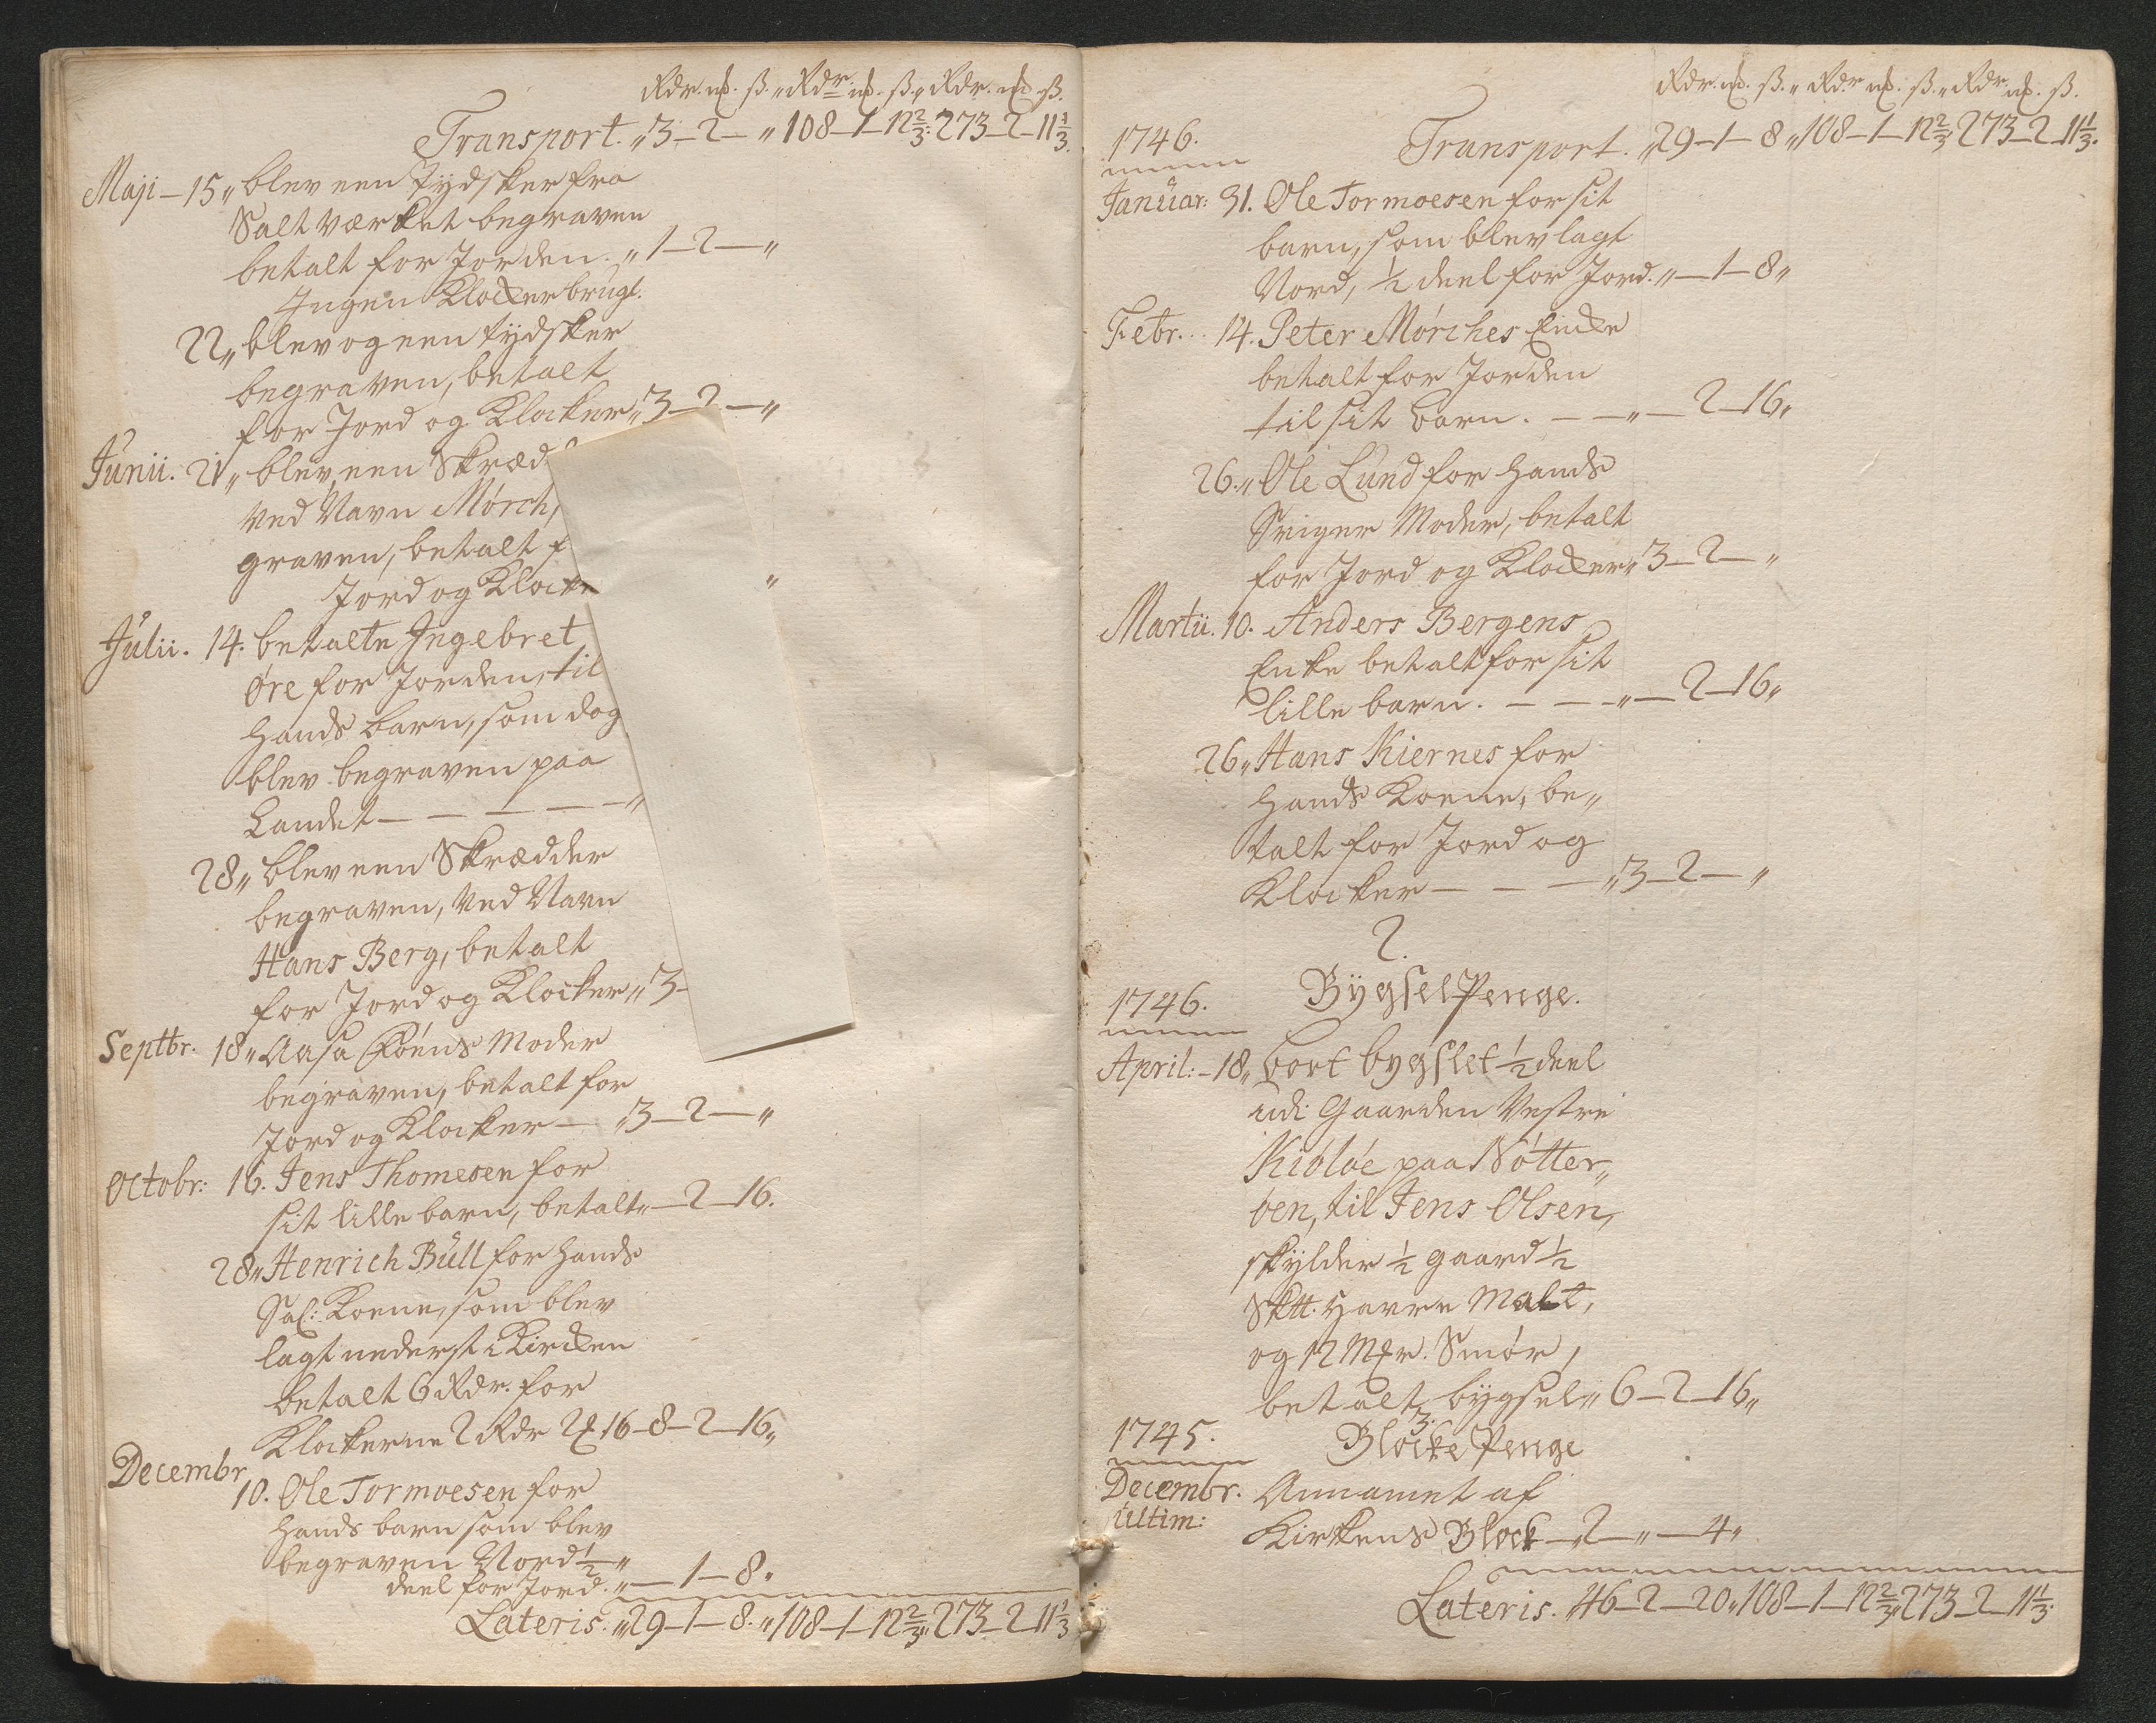 Rdr. mk. ß. „ Rdr. mk. ß. „ Rdr. mk. ß.
Transport. „ 3 – 2 – „ 108 – 1 – 12 2/3 „ 273 – 2 – 11 1/3.
Maji – 15 „ blev een Tydsker fra
Saltværket begraven
betalt for Jorden. „ 1 – 2 – „
Ingen Klocker brugt.
22 „ blev og een tydsker
begraven, betalt
for Jord og Klocker „ 3 – 2 – „
Junii. 21 „ blev een Skræd
ved Navn Mörch,
graven, betalt f
Jord og Klocke
„
Julii. 14. betalte Ingebret
Öre for Jorden, til
hands barn, som dog
blev begraven paa
Landet – – – – „
28 „ blev een Skrædder
begraven, ved Navn
Hans Berg, betalt
for Jord og Klocker „ 3 –
Septbr. 18 „ Aasa Moder
begraven, betalt for
Jord og Klocker – „ 3 – 2 – „
Octobr: 16. Jens Thomesen for
sit lille barn, betalt „ – 2 – 16.
28 „ Henrich Büll for hands
Sal: Koene, som blev
lagt nederst i Kircken
betalt 6 Rdr. for
Klockerne 2 Rdr 2 mk 16 – 8 – 2 – 16 „
Decembr
10. Ole Tormoesen for
hands barn som blev
begraven Nord 1/2 „
deel for Jord. „ – 1 – 8 „
Lateris. „ 29 – 1 – 8. „ 108 – 1 – 12 2/3 „ 273 – 2 – 11 1/3
Rdr. mk. ß. „ Rdr mk. ß. „ Rdr mk. ß.
1746. Transport. „ 29 – 1 – 8 „ 108 – 1 – 12 2/3 „ 273 – 2 – 11 1/3.
Januar: 31. Ole Tormoesen for sit
barn, som blev lagt
Nord, 1/2 deel for Jord. „ – 1 – 8 „
Febr. 14. Peter Mörches Encke
betalt for Jorden
til sit barn. – – „ – 2 – 16 „
26. „ Ole Lund for hands
Sviger Moder, betalt
for Jord og Klocker „ 3 – 2 – „
Martii. 10. Anders Bergens
Enke betalt for sit
lille barn. – – – „ – 2 – 16 „
26 „ Hans Kiernes for
hands Koene, be „
talt for Jord og
Klocker – – – „ 3 – 2 – „
2.
Bygsel Penge.
1746.
April: – 18 „ bort bygslet 1/2 deel
udi Gaarden Vestre
Kiölöe paa Nötter „
öen, til Jens Olsen,
skylder 1/2 gaard 1/2
Sktt. Havre Malt,
og 12 Mkr. Smör,
betalt bygsel „ 6 – 2 – 16 „
3.
1745. Blocke Penge
Decembr. Annamet af
Ultim: Kirkens Block – „ 2 – „ – 4 „
Lateris. „ 46 – 2 – 20 „ 108 – 1 – 12 2/3 „ 273 – 2 – 11 1/3.